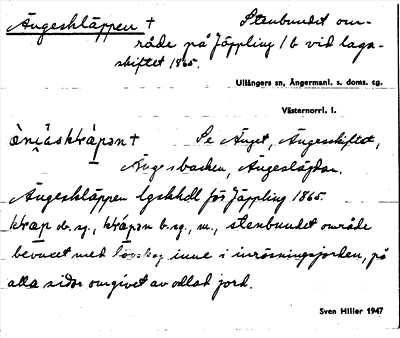 Ängesklappen † Stenbundet om-
råde på Jäppling 1 b vid laga-
skiftet 1865.
Ullångers sn, Ångermanl. s. doms. tg.
Västernorrl. l.
Se Änget, Ängesskiftet,
Ängesbacken, Ängeslägdan.
Ängesklappen lgskhdl för Jäppling 1865.
ob. sg., b. sg., m., stenbundet område
bevuxet med lövskog inne i inrösningsjorden, på
alla sidor omgivet av odlad jord.
Sven Hiller 1947